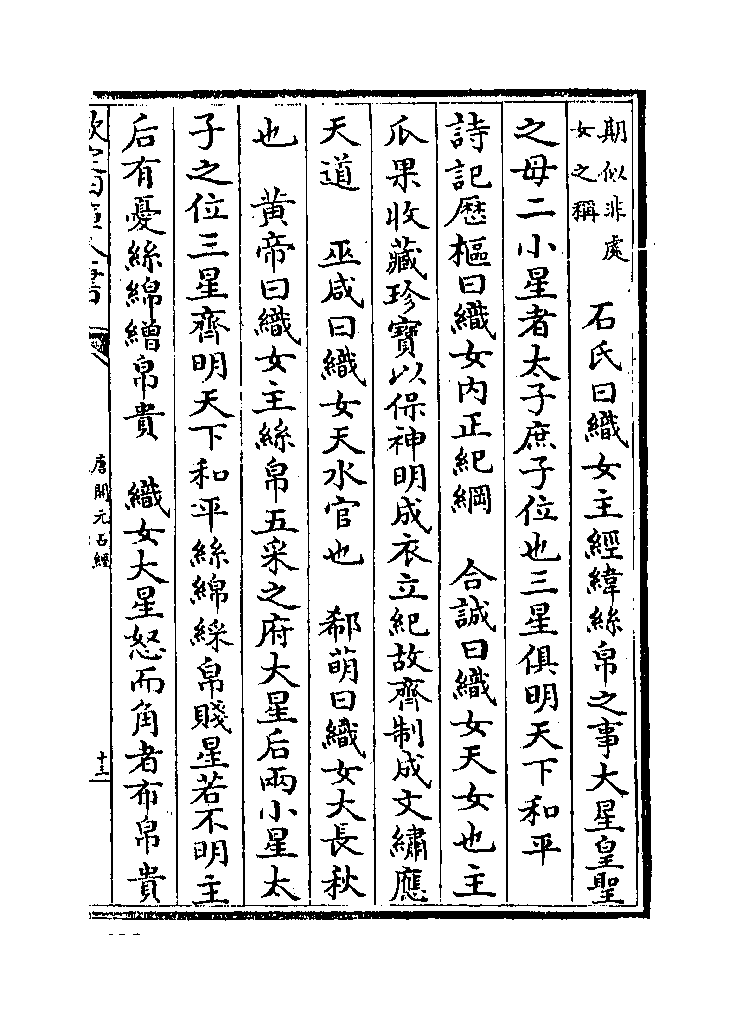 期似非處
女之稱
石氏曰織女主經緯絲帛之事大星皇聖
之母二小星者太子庶子位也三星俱明天下和平
詩記歷樞曰織女内正紀綱　合誠曰織女天女也主
瓜果收藏珍寶以保神明成衣立紀故齊制成文繡應
天道　巫咸曰織女天水官也　郗萌曰織女大長秋
也　黄帝曰織女主絲帛五采之府大星后兩小星太
子之位三星齊明天下和平絲綿綵帛賤星若不明主
后有憂絲綿繒帛貴　織女大星怒而角者布帛貴
唐開元占經
十三